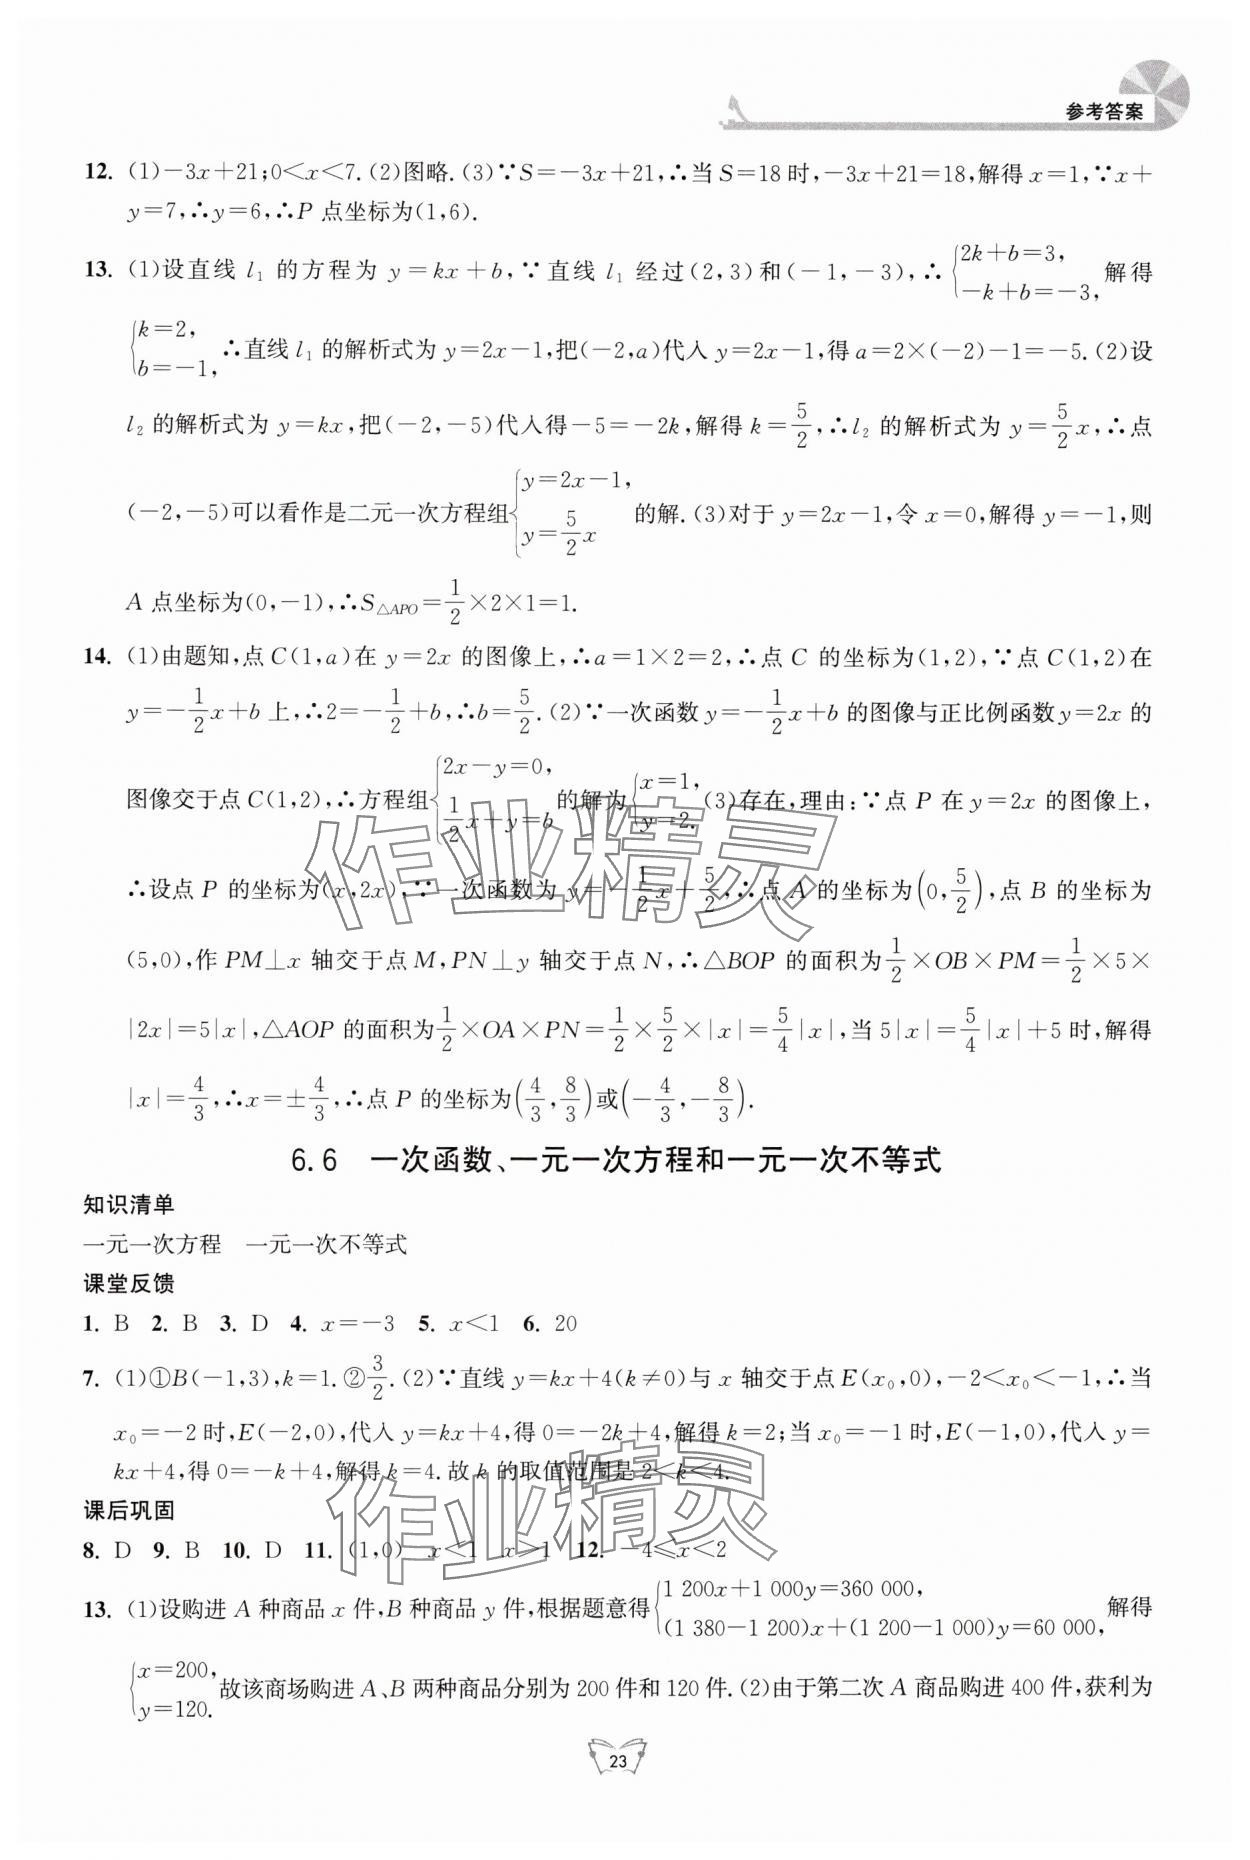 参考答案
12. (1)-3x+21;0<x<7.(2)图略.(3)∵S=-3x+21,∴当S=18时,-3x+21=18,解得x=1,∵x+
y=7,∴y=6,∴P点坐标为(1,6).
13. (1)设直线 l₁ 的方程为 y=kx+b,∵直线 l₁ 经过(2,3)和(-1,-3),∴{2k+b=3, -k+b=-3, 解得
{k=2, b=-1, ∴直线 l₁ 的解析式为 y=2x-1,把(-2,a)代入 y=2x-1,得 a=2×(-2)-1=-5.(2)设
l₂ 的解析式为 y=kx,把(-2,-5)代入得-5=-2k,解得 k=5/2,∴l₂ 的解析式为 y=5/2x,∴点
(-2,-5)可以看作是二元一次方程组{y=2x-1, y=5/2x 的解.(3)对于 y=2x-1,令 x=0,解得 y=-1,则
A 点坐标为(0,-1),∴S△APO=1/2×2×1=1.
14. (1)由题知,点 C(1,a)在 y=2x 的图像上,∴a=1×2=2,∴点 C 的坐标为(1,2),∵点 C(1,2)在
y=-1/2x+b 上,∴2=-1/2+b,∴b=5/2.(2)∵一次函数 y=-1/2x+b 的图像与正比例函数 y=2x 的
图像交于点 C(1,2),∴方程组{2x-y=0, 1/2x+y=b 的解为{x=1, y=2. (3)存在,理由:∵点 P 在 y=2x 的图像上,
∴设点 P 的坐标为(x,2x),∵一次函数为 y=-1/2x+5/2,∴点 A 的坐标为(0,5/2),点 B 的坐标为
(5,0),作 PM⊥x 轴交于点 M,PN⊥y 轴交于点 N,∴△BOP 的面积为1/2×OB×PM=1/2×5×
|2x|=5|x|,△AOP 的面积为1/2×OA×PN=1/2×5/2×|x|=5/4|x|,当 5|x|=5/4|x|+5 时,解得
|x|=4/3,∴x=±4/3,∴点 P 的坐标为(4/3,8/3)或(-4/3,-8/3).
6.6 一次函数、一元一次方程和一元一次不等式
知识清单
一元一次方程 一元一次不等式
课堂反馈
1. B 2. B 3. D 4. x=-3 5. x<1 6. 20
7. (1)①B(-1,3),k=1.②3/2.(2)∵直线 y=kx+4(k≠0)与 x 轴交于点 E(x₀,0),-2<x₀<-1,∴当
x₀=-2时,E(-2,0),代入 y=kx+4,得 0=-2k+4,解得 k=2;当 x₀=-1时,E(-1,0),代入 y=
kx+4,得 0=-k+4,解得 k=4.故 k 的取值范围是 2<k<4.
课后巩固
8. D 9. B 10. D 11. (1,0) x<1 x>1 12. -4≤x<2
13. (1)设购进 A 种商品 x 件,B 种商品 y 件,根据题意得{1 200x+1 000y=360 000, (1 380-1 200)x+(1 200-1 000)y=60 000, 解得
{x=200, y=120. 故该商场购进 A、B 两种商品分别为 200 件和 120 件.(2)由于第二次 A 商品购进 400 件,获利为
23
作业精灵
作业精灵